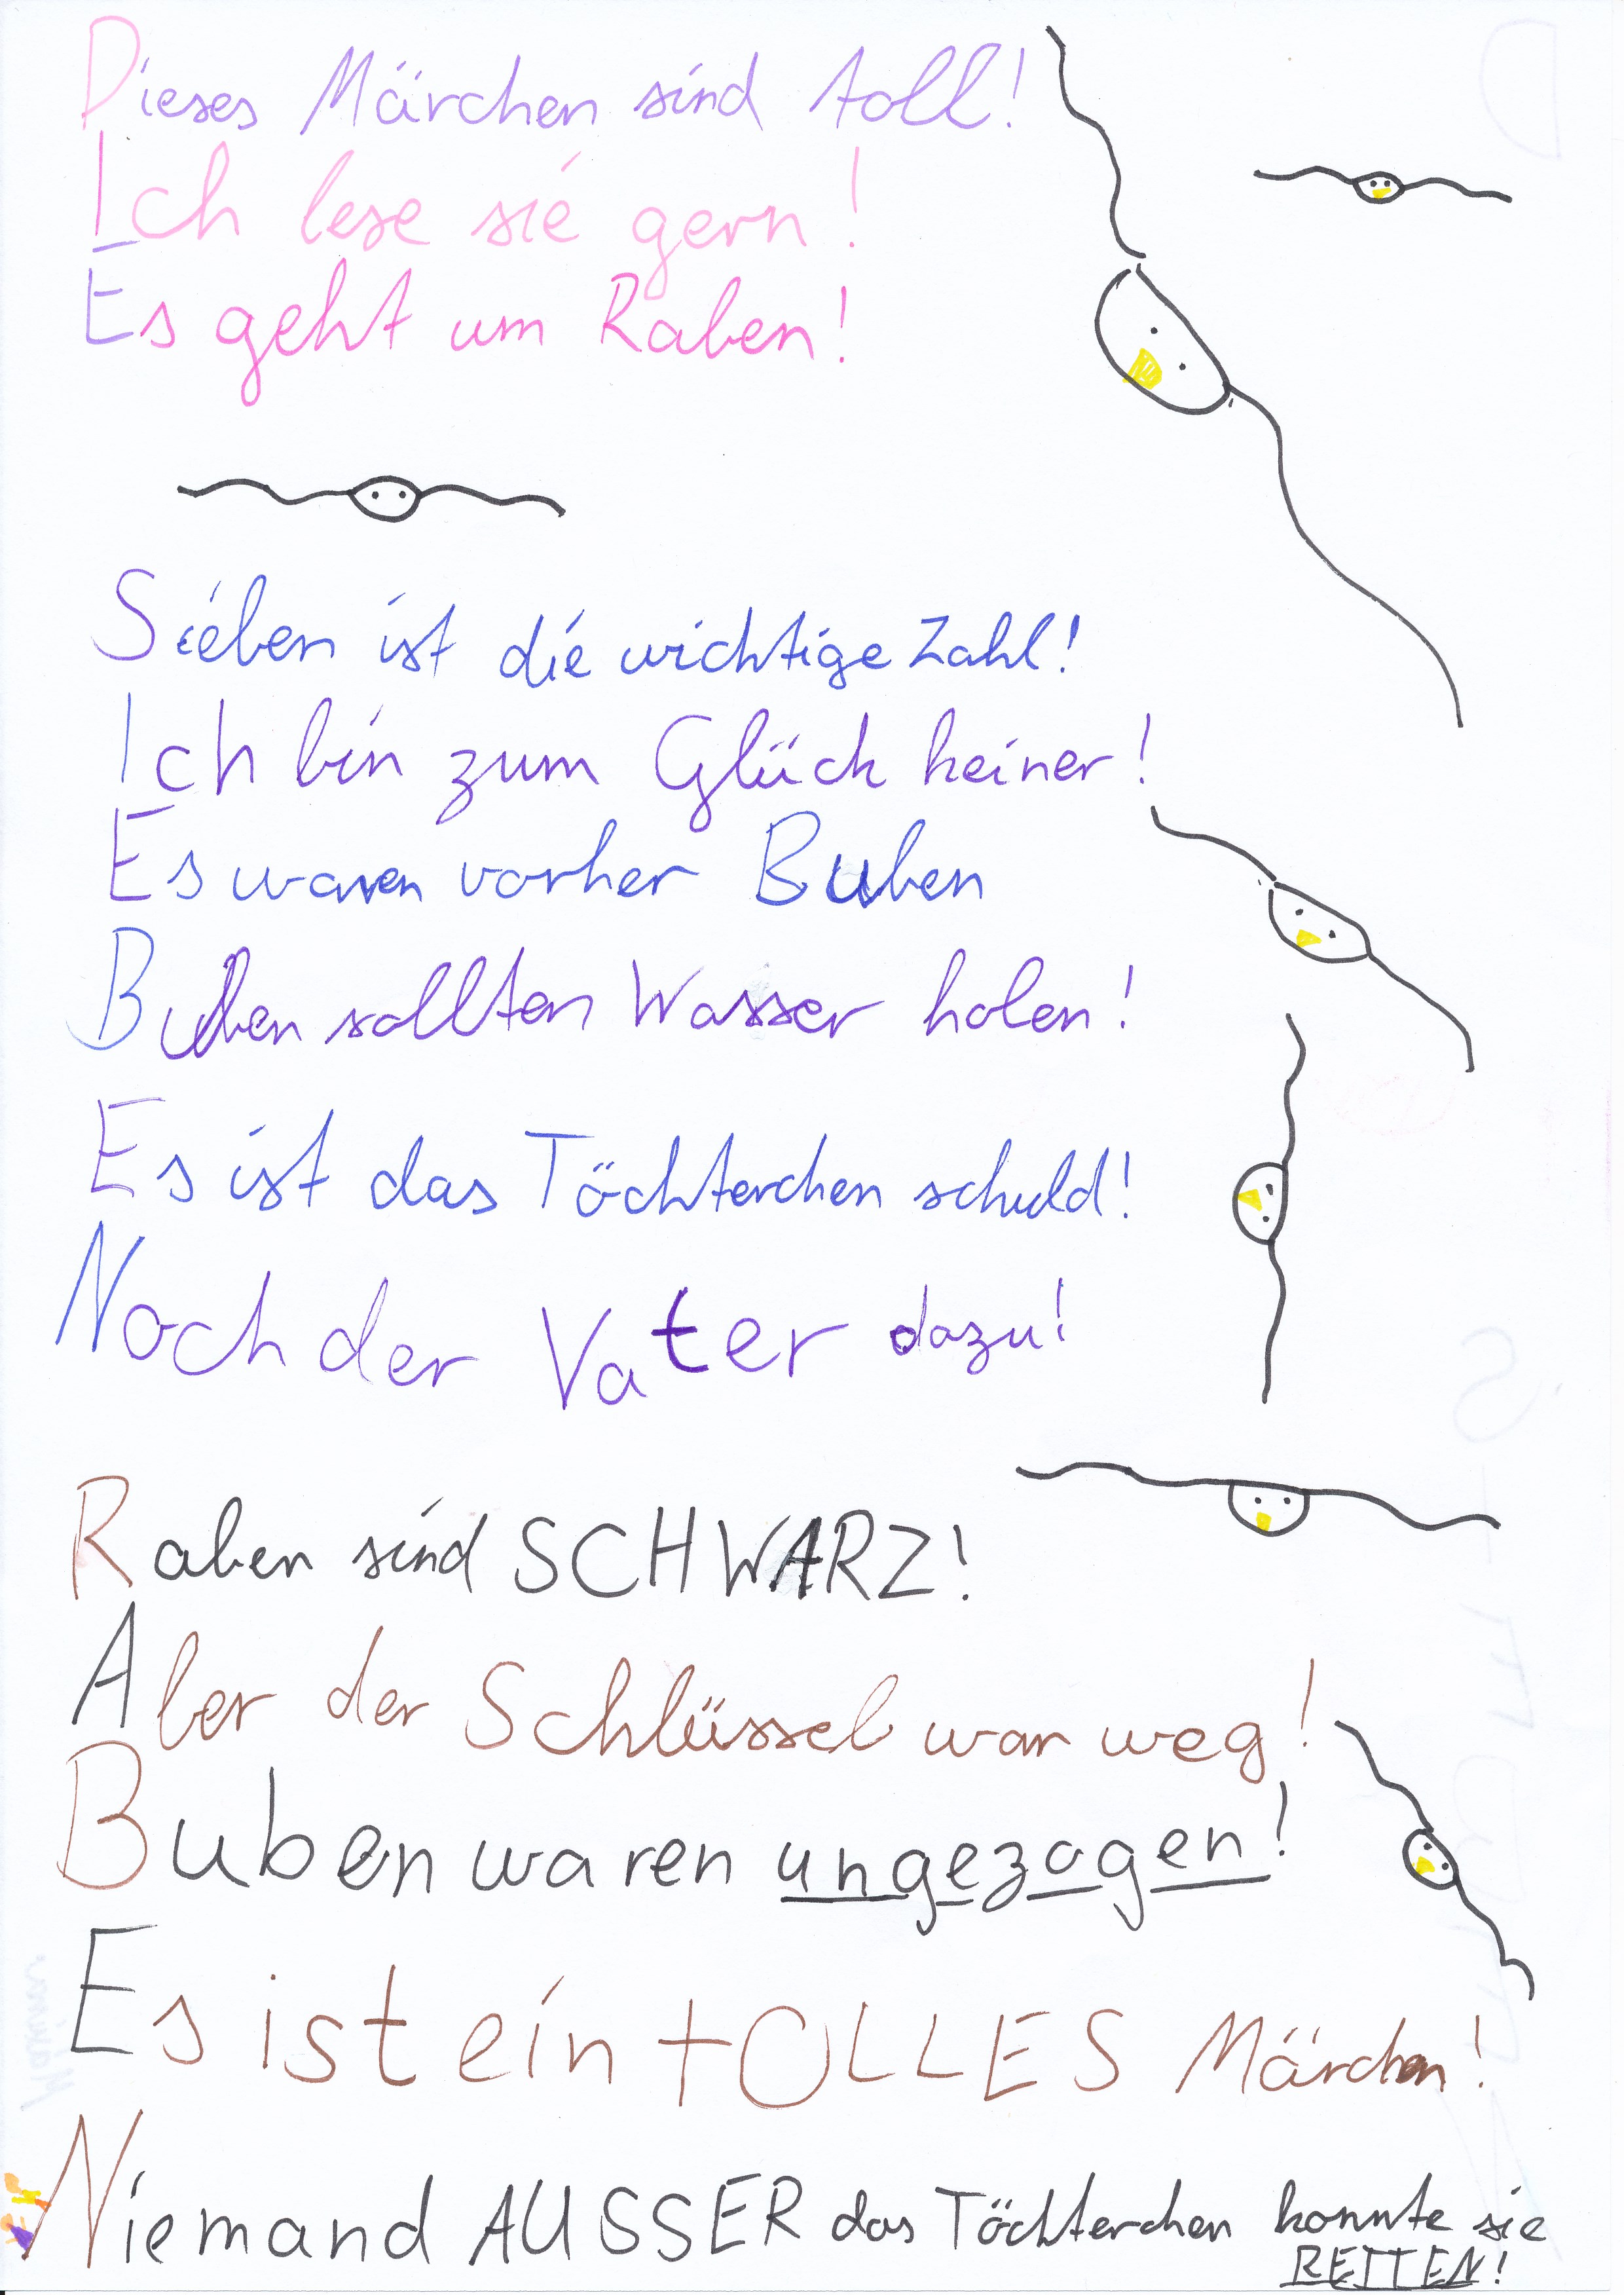 Dieses Märchen sind toll!
Ich lese sie gern!
Es geht um Raben!
Sieben ist die wichtige Zahl!
Ich bin zum Glück keiner!
Es waren vorher Buben
Buben sollten Wasser holen!
Es ist das Töchterchen schuld!
Noch der Vater dazu!
Raben sind SCHWARZ!
Aber der Schlüssel war weg!
Buben waren ungezogen!
Es ist ein tOLLES Märchen!
Niemand AUSSER das Töchterchen konnte sie
RETTEN!